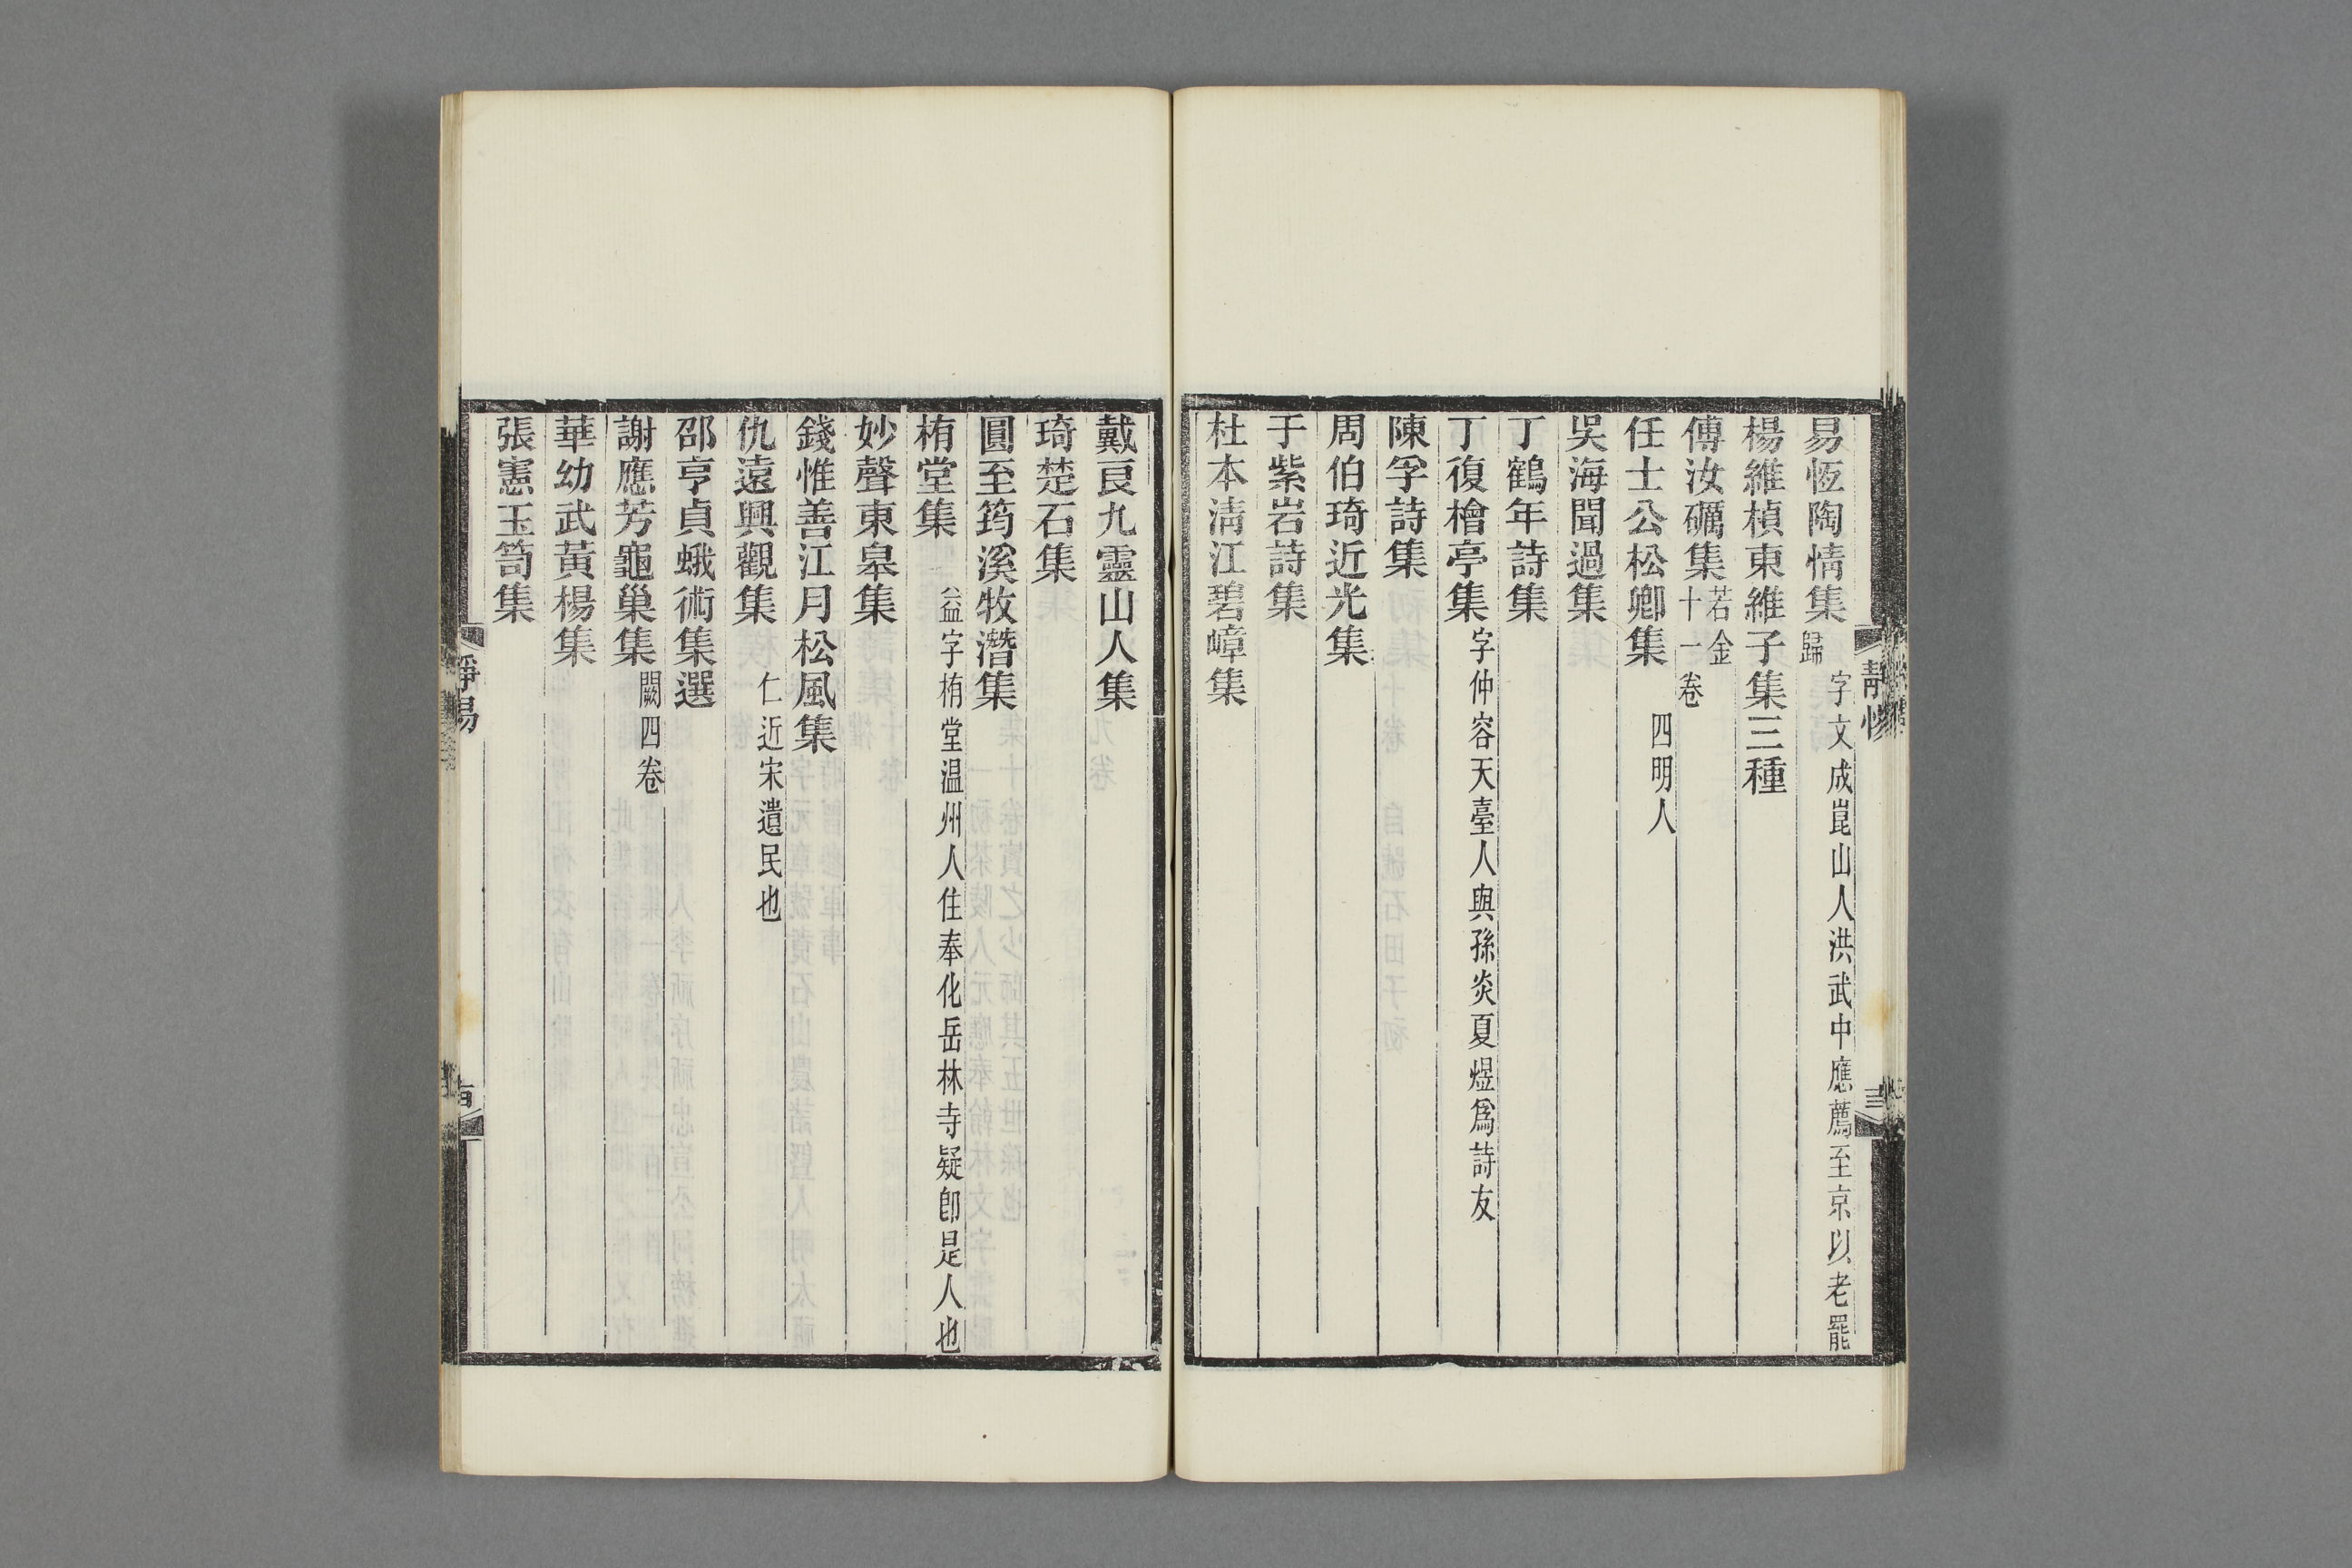 易恆陶情集 字文成崑山人洪武中應薦至京以老罷歸
楊維楨東維子集三種
傅汝礪集 若金十一卷
任士公松卿集 四明人
吳海聞過集
丁鶴年詩集
丁復檜亭集 字仲容天臺人與孫炎夏煜爲詩友
陳孚詩集
周伯琦近光集
于紫岩詩集
杜本淸江碧嶂集
戴良九靈山人集
琦楚石集
圓至筠溪牧潛集
栯堂集 益字栯堂温州人住奉化岳林寺疑卽是人也
妙聲東皋集
錢惟善江月松風集
仇遠興觀集 仁近宋遺民也
邵亨貞蛾術集選
謝應芳龜巢集 闕四卷
華幼武黃楊集
張憲玉笥集